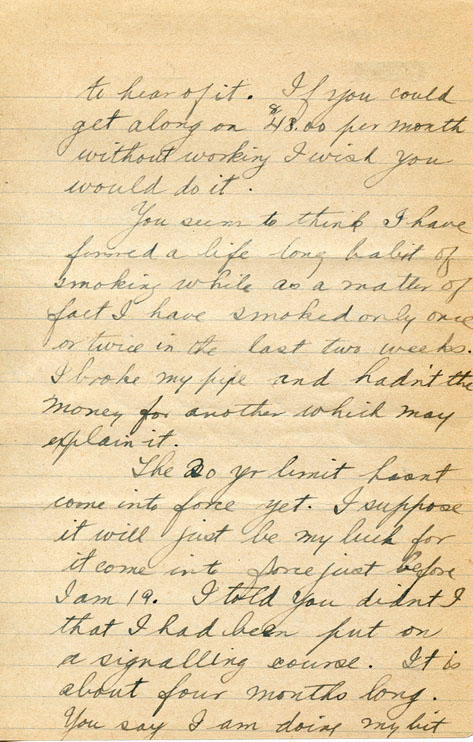 to hear of it. If you could
get along on $48.00 per month
without working I wish you
would do it.
You seem to think I have
formed a life long habit of
smoking while as a matter of
fact I have smoked only once
or twice in the last two weeks.
I broke my pipe and hadn't the
money for another which may
explain it.
The 20 yr limit hasnt
come into force yet. I suppose
it will just be my luck for
it come into force just before
I am 19. I told you didnt I
that I had been put on
a signalling course. It is
about four months long.
You say I am doing my bit